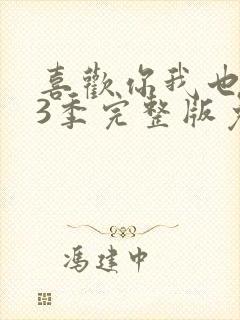 喜歡你我也
3季完整版
馮建中